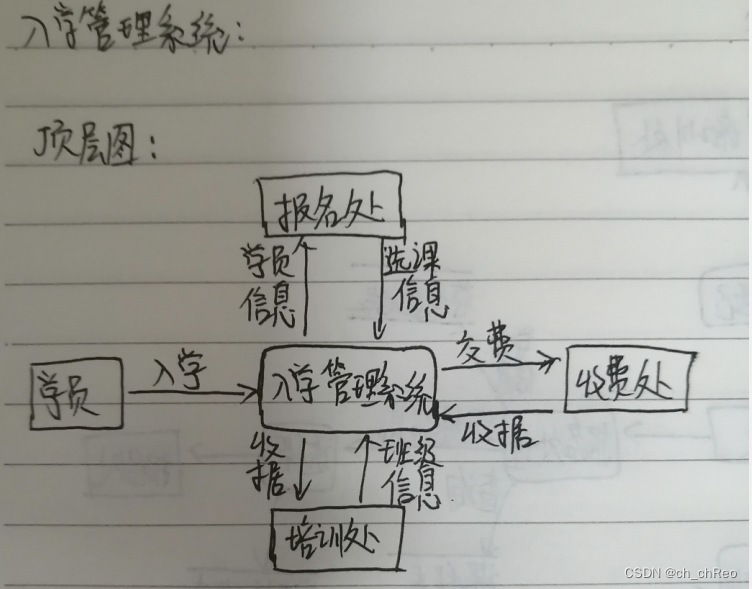 入学管理系统:
顶层图:
报名处
学员
信息
选课
信息
学员
入学
入学管理系统
交费
收据
收费处
收
据
班级
信息
培训处
CSDN @ch_chReo